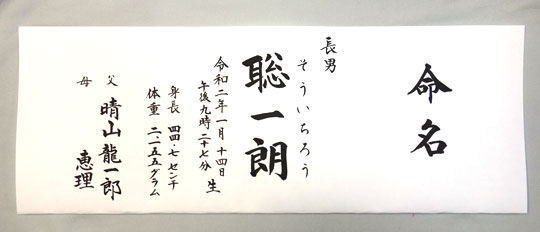 命名
長男
そういちろう
聡一朗
令和二年一月十四日
午後九時二十七分 生
身長 四四・七センチ
体重 二・一五五グラム
父 晴山龍一郎
母 恵理